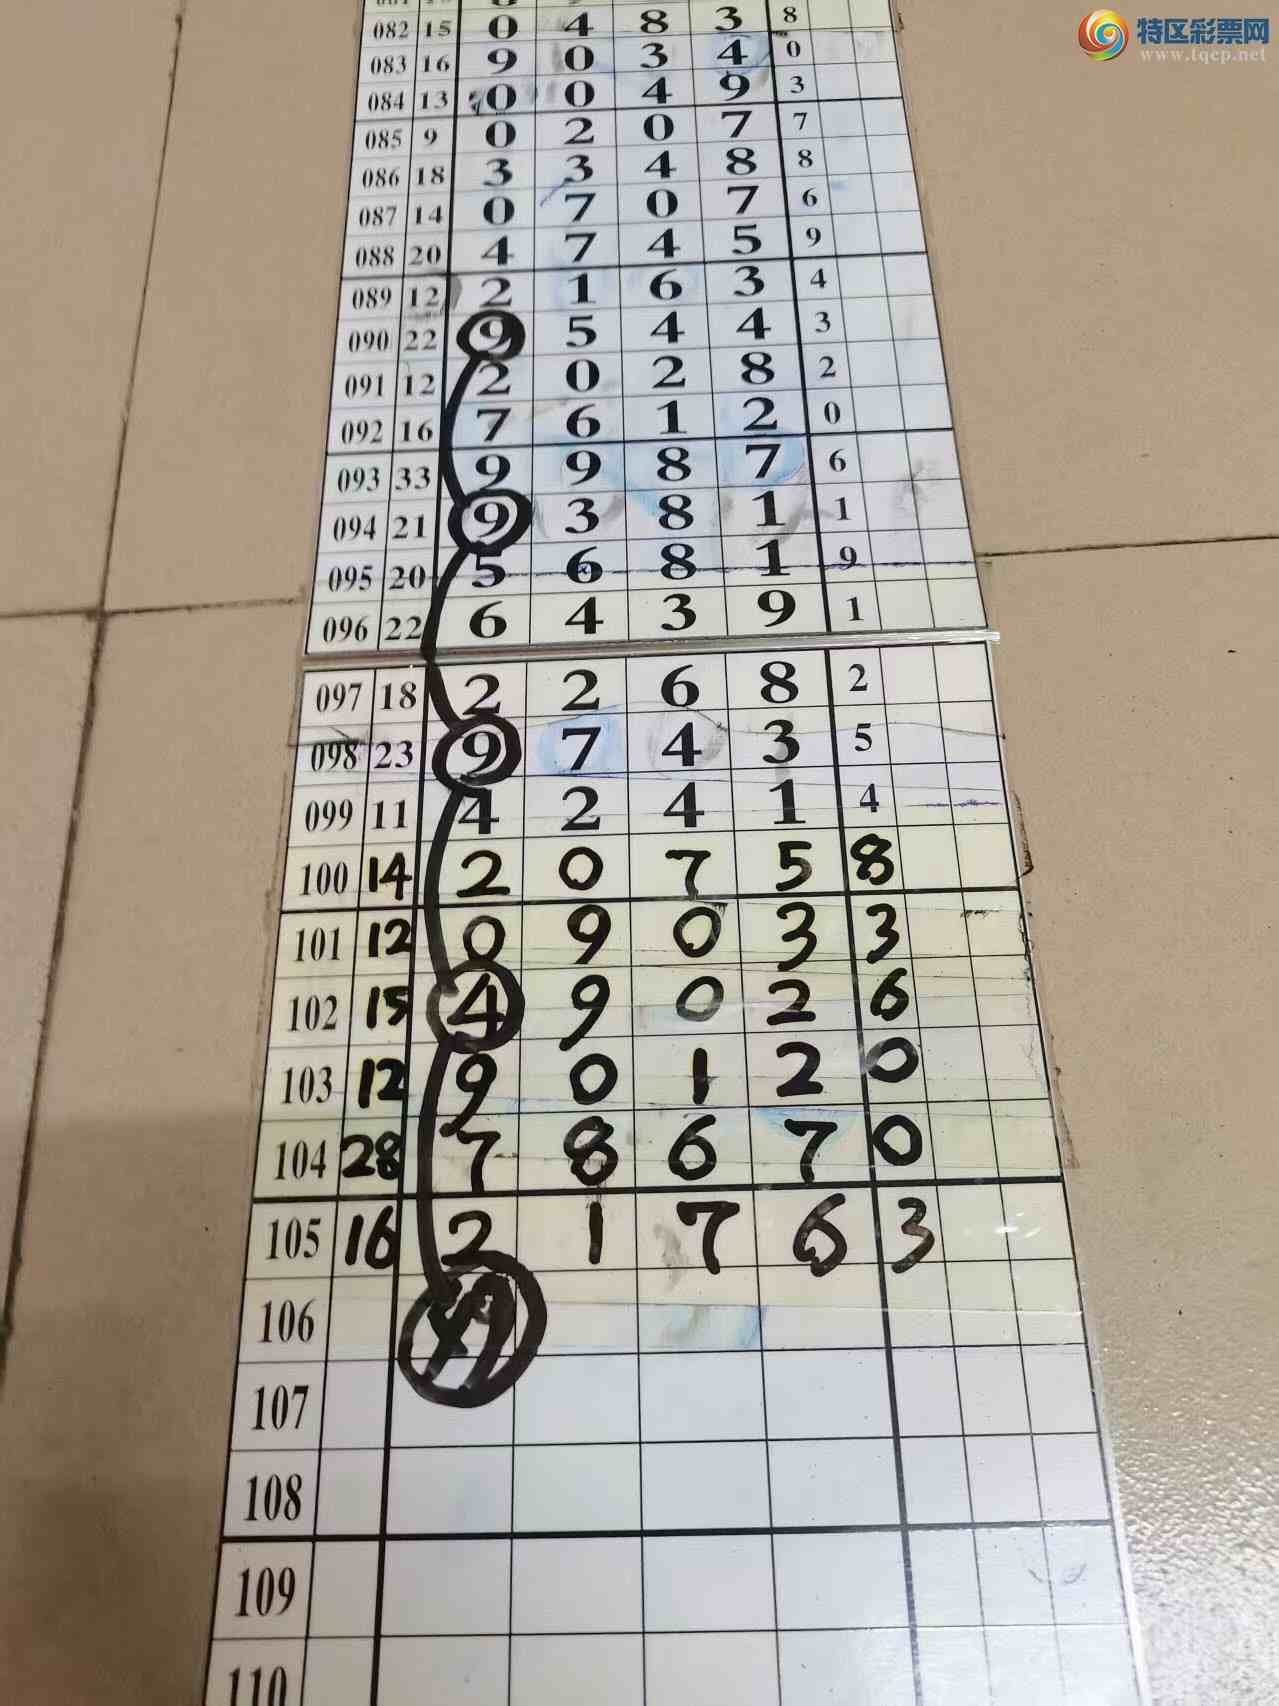 特区彩票网
www.tqcp.net
082 15 0 4 8 3 8
083 16 9 0 3 4 0
084 13 0 0 4 9 3
085 9 0 2 0 7 7
086 18 3 3 4 8 8
087 14 0 7 0 7 6
088 20 4 7 4 5 9
089 12 2 1 6 3 4
090 22 9 5 4 4 3
091 12 2 0 2 8 2
092 16 7 6 1 2 0
093 33 9 9 8 7 6
094 21 9 3 8 1 1
095 20 5 6 8 1 9
096 22 6 4 3 9 1
097 18 2 2 6 8 2
098 23 9 7 4 3 5
099 11 4 2 4 1 4
100 14 2 0 7 5 8
101 12 0 9 0 3 3
102 15 4 9 0 2 6
103 12 9 0 1 2 0
104 28 7 8 6 7 0
105 16 2 1 7 6 3
106
107
108
109
110